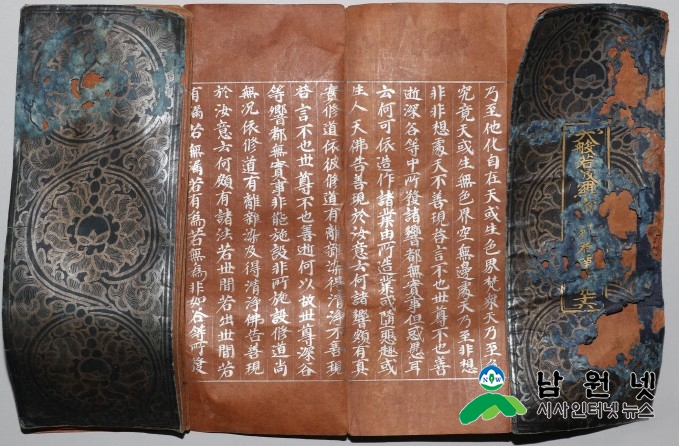 大般若波
乃至他化自在天或生色界梵衆天乃至色
究竟天或生無色界空無邊處天乃至非想
非非想處天不善現答言不也世尊不也善
逝深谷等中所發諸響都無實事但惑愚耳
云何可依造作諸業由所造業或墮惡趣或
生人天佛告善現於汝意云何諸響頗有真
實修道依彼修道有離雜染得清淨不善現
答言不也世尊不也善逝何以故世尊深谷
等響都無實事非能施設非所施設修道尚
無況依修道有離雜染及得清淨佛告善現
於汝意云何頗有諸法若世間若出世間若
有漏若無漏若有爲若無爲非如谷等所發
NOW
남원넷
시사인터넷뉴스